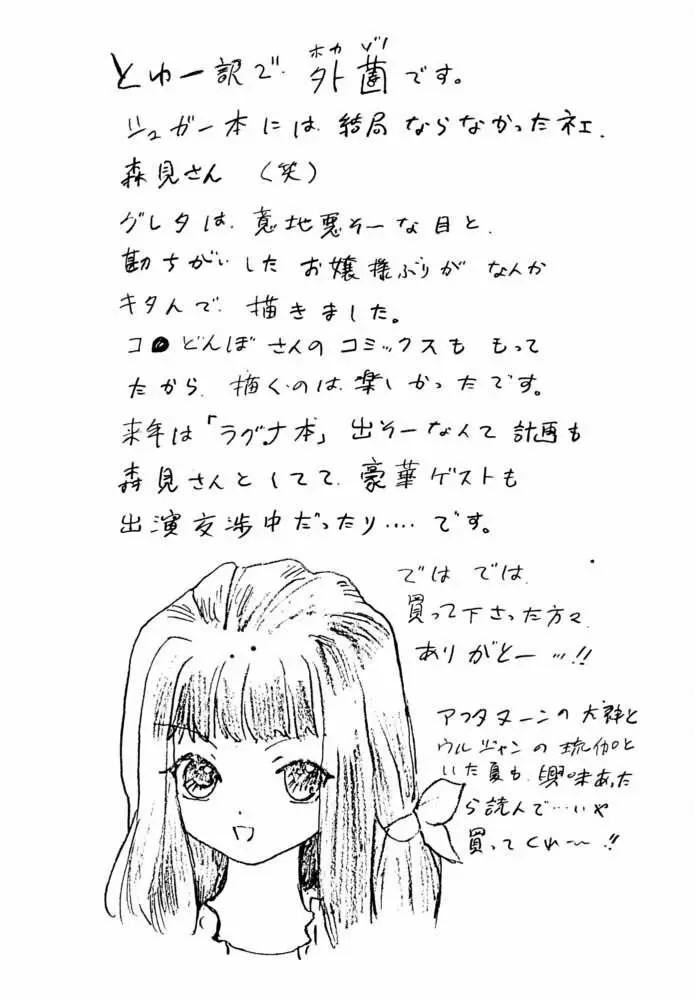 ホカ ゾノ
とゆー訳で、外薗です。
シュガー本には、結局 ならなかったネェ、
森見さん (笑)
グレタは、意地悪そーな目と、
勘ちがいした お嬢様ぶりが なんか
キタんで、描きました。
コ●どんぼさんのコミックスも もって
たから、描くのは、楽しかったです。
来年は「ラグナ本」出そーなんて 計画も
森見さんとしてて、豪華ゲストも
出演交渉中だったり‥‥です。
では では、
買って下さった方々、
ありがとー…!!
アフタヌーンの犬神と
ウルジャンの琉伽と
いた夏も、興味あった
ら読んで…いや
買ってくれ〜〜!!